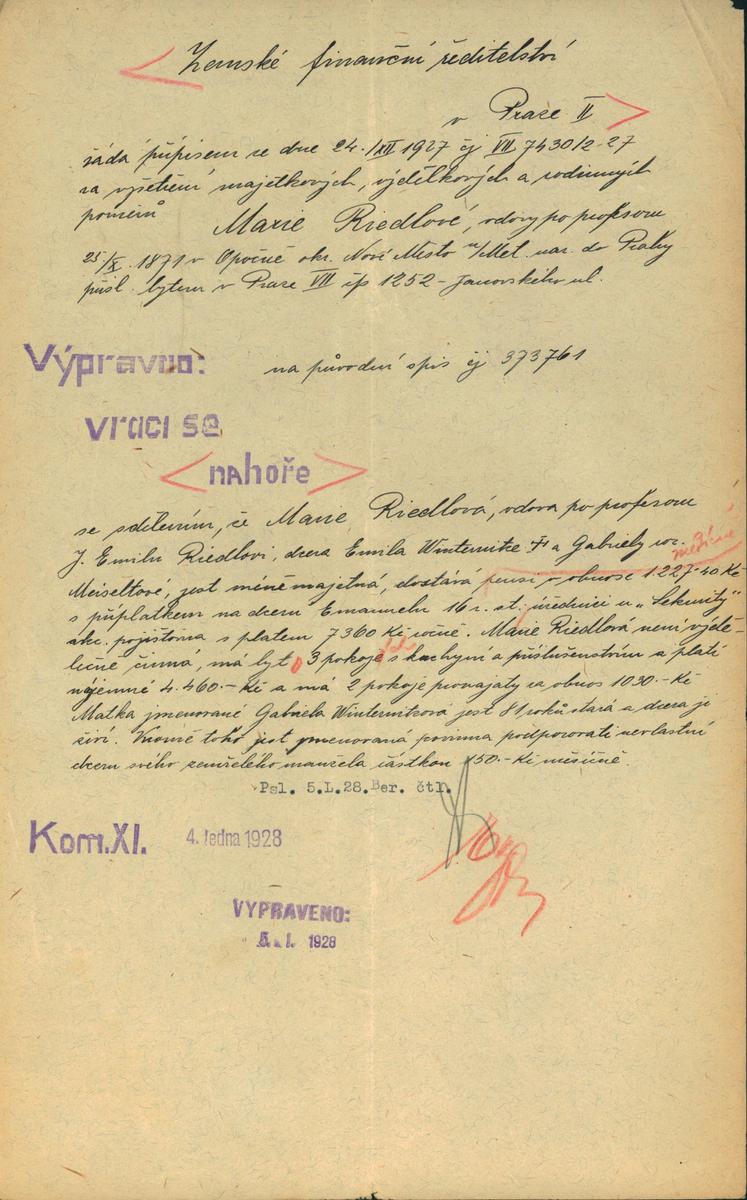 Zemské finanční ředitelství
v Praze II
žádá přípisem ze dne 24./XII 1927 čj VII 7430/2-27
za vyšetření majetkových, výdělkových a rodinných
poměrů Marie Riedlové, vdovy po profesoru
25/X. 1871 v Opočně okr. Nové Město n/Met. nar. do Prahy
přísl. bytem v Praze VII čp 1252 - Janovského ul.
Výpravno: na původní spis čj 373761
vrací se
nahoře
se sdělením, že Marie Riedlová, vdova po profesoru
J. Emilu Riedlovi, dcera Emila Winternitze † a Gabriely roz.
Meiseltové, jest méněmajetná, dostává pensi v obnose 1.227·40 Kč
měsíčně
s příplatkem na dceru Emanuelu 16 r. st. úřednici u „Sekurity"
akc. pojišťovna s platem 7360 Kč ročně. Marie Riedlová není výdě-
lečně činná, má byt 3 pokoje s kuchyní a příslušenstvím a platí
nájemné 4.460.- Kč a má 2 pokoje pronajaty za obnos 1030.- Kč
Matka jmenované Gabriela Winternitzová jest 81 roků stará a dcera ji
živí. Kromě toho jest jmenovaná povinna podporovati nevlastní
dceru svého zemřelého manžela částkou 150.- Kč měsíčně.
Psl. 5.L.28.Ber. čtl.
Kom.XI. 4. ledna 1928
VYPRAVENO:
5. I. 1928